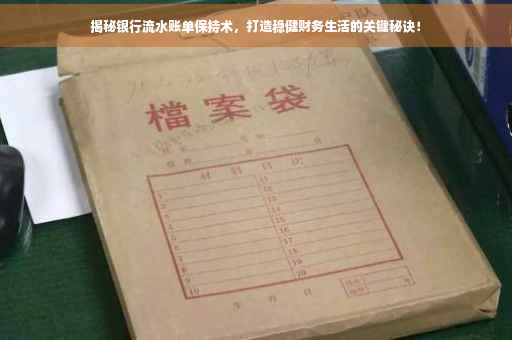 揭秘银行流水账单保持术，打造稳健财务生活的关键秘诀！
檔案袋
材料目次
1 11
2 12
3 13
4 14
5 15
6 16
7 17
8 18
9 19
10 20
年 月 日